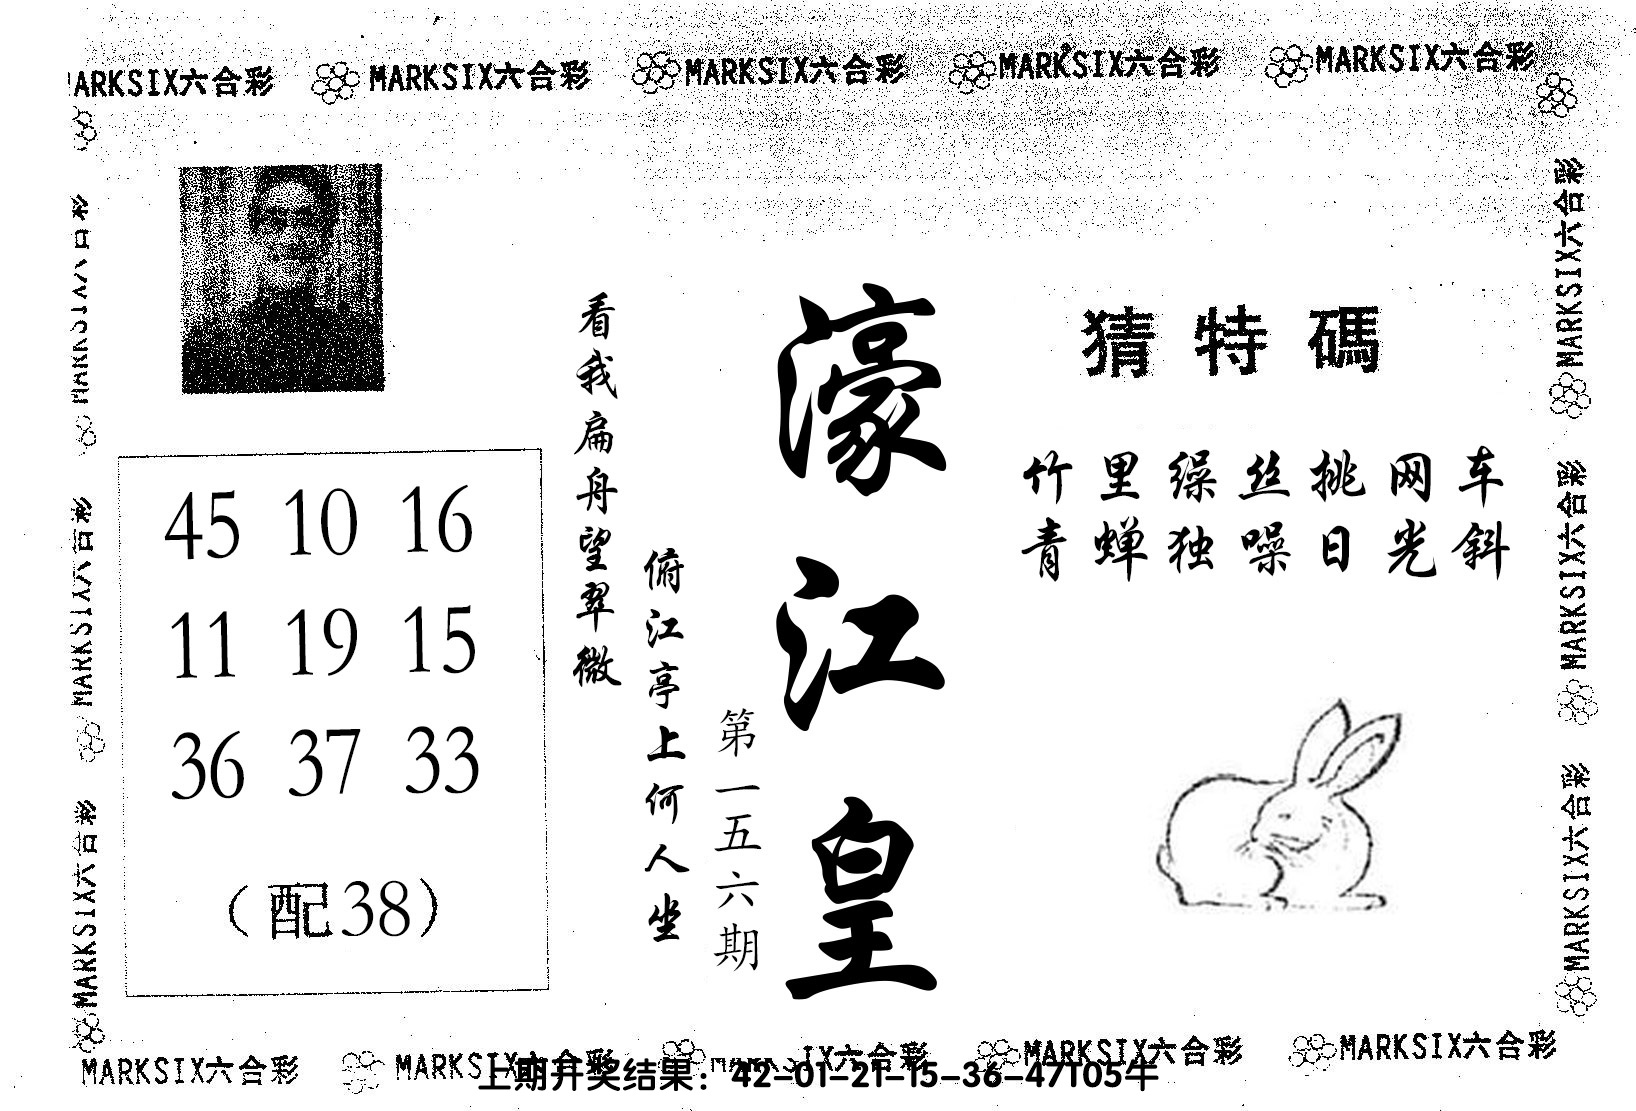 MARKSIX六合彩 MARKSIX六合彩 MARKSIX六合彩 MARKSIX六合彩
猜特碼
竹里缲丝挑网车
青蝉独噪日光斜
濠江皇
第一五六期
俯江亭上何人坐
看我扁舟望翠微
45 10 16
11 19 15
36 37 33
(配38)
MARKSIX六合彩
MARKSIX六合彩
MARKSIX六合彩
MARKSIX六合彩
MARKSIX六合彩
MARKSIX六合彩 MARKSIX六合彩 MARKSIX六合彩 MARKSIX六合彩
上期开奖结果：42-01-21-15-36-47T05牛